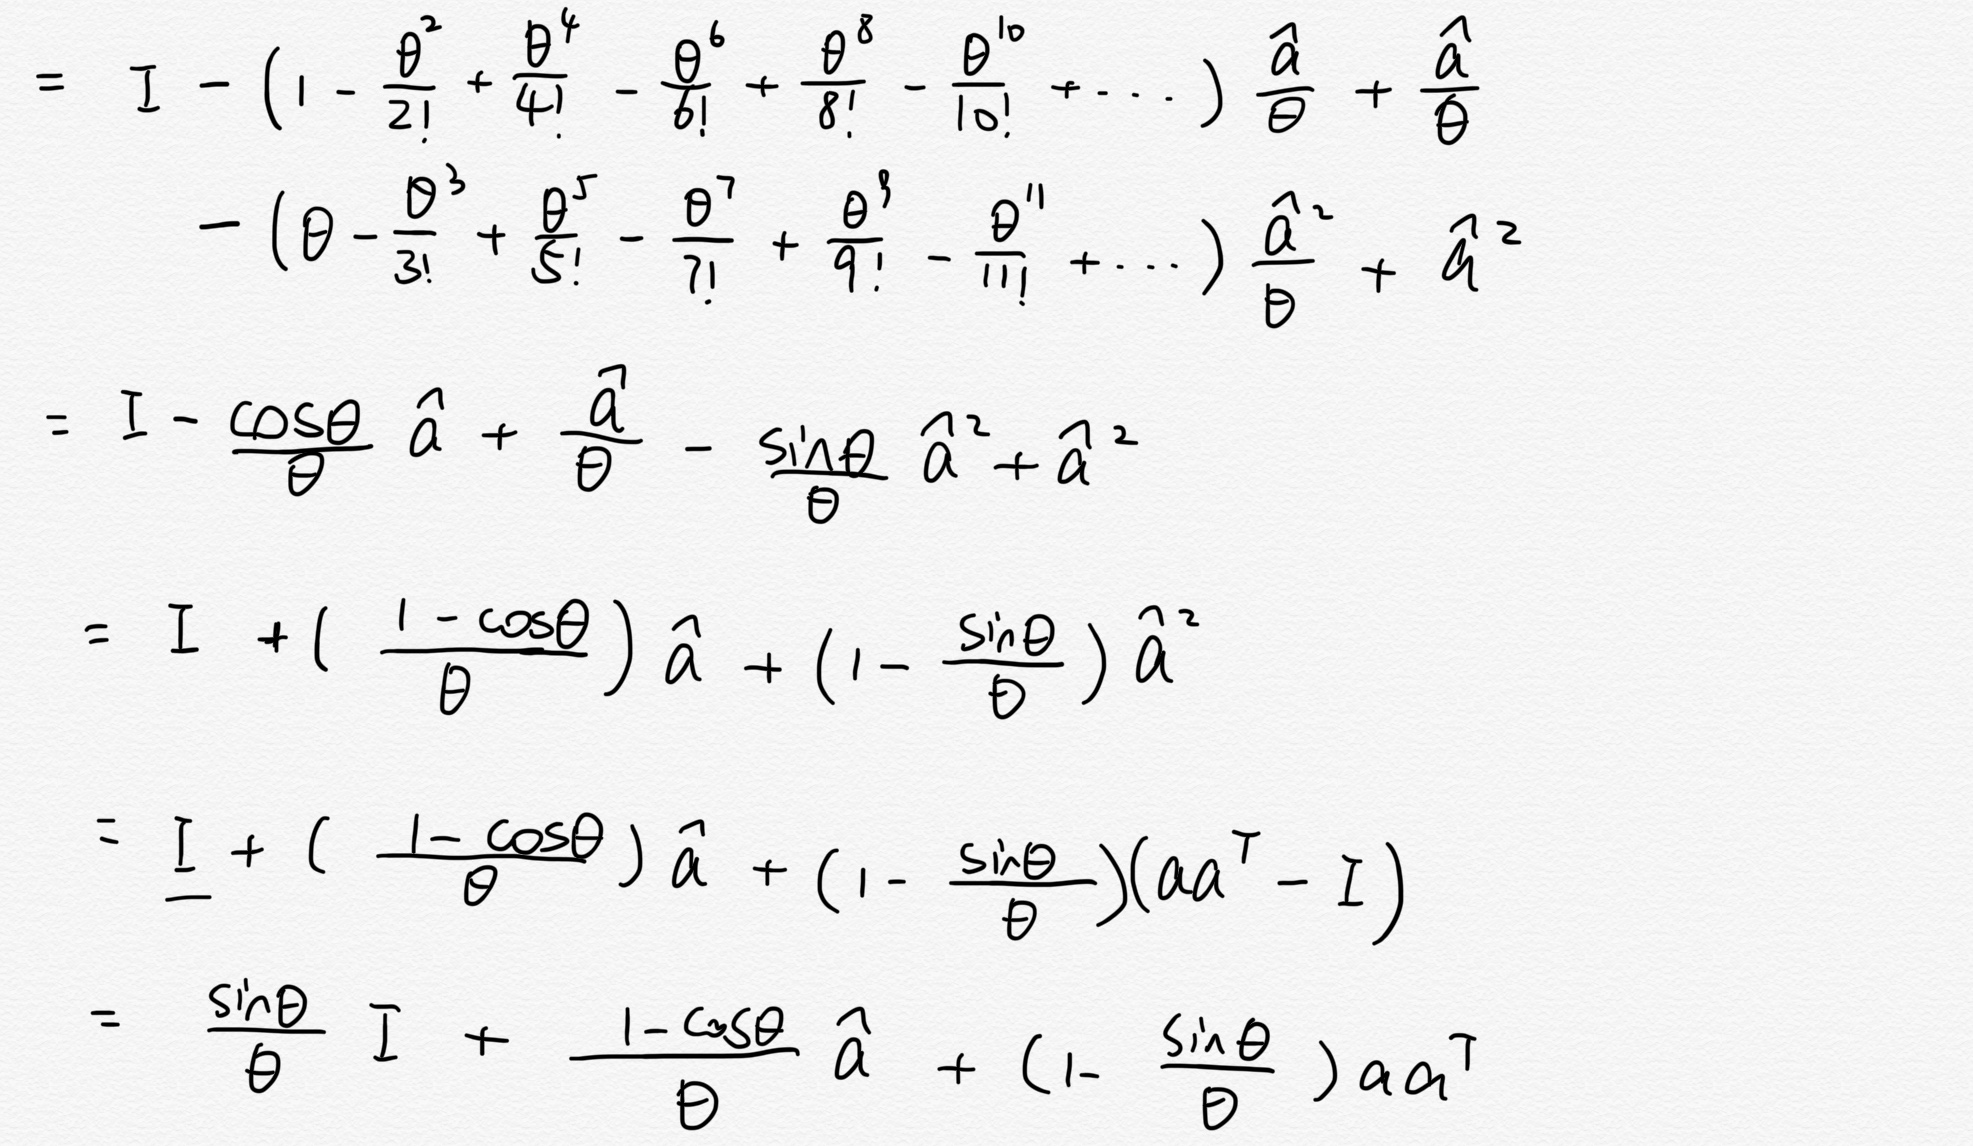 = I - (1 - θ²/2! + θ⁴/4! - θ⁶/6! + θ⁸/8! - θ¹⁰/10! + ···) â/θ + â/θ
- (θ - θ³/3! + θ⁵/5! - θ⁷/7! + θ⁹/9! - θ¹¹/11! + ···) â²/θ + â²
= I - cosθ/θ â + â/θ - sinθ/θ â² + â²
= I + ( (1 - cosθ)/θ ) â + (1 - sinθ/θ) â²
= I + ( (1 - cosθ)/θ ) â + (1 - sinθ/θ)(aaᵀ - I)
= sinθ/θ I + (1 - cosθ)/θ â + (1 - sinθ/θ) aaᵀ